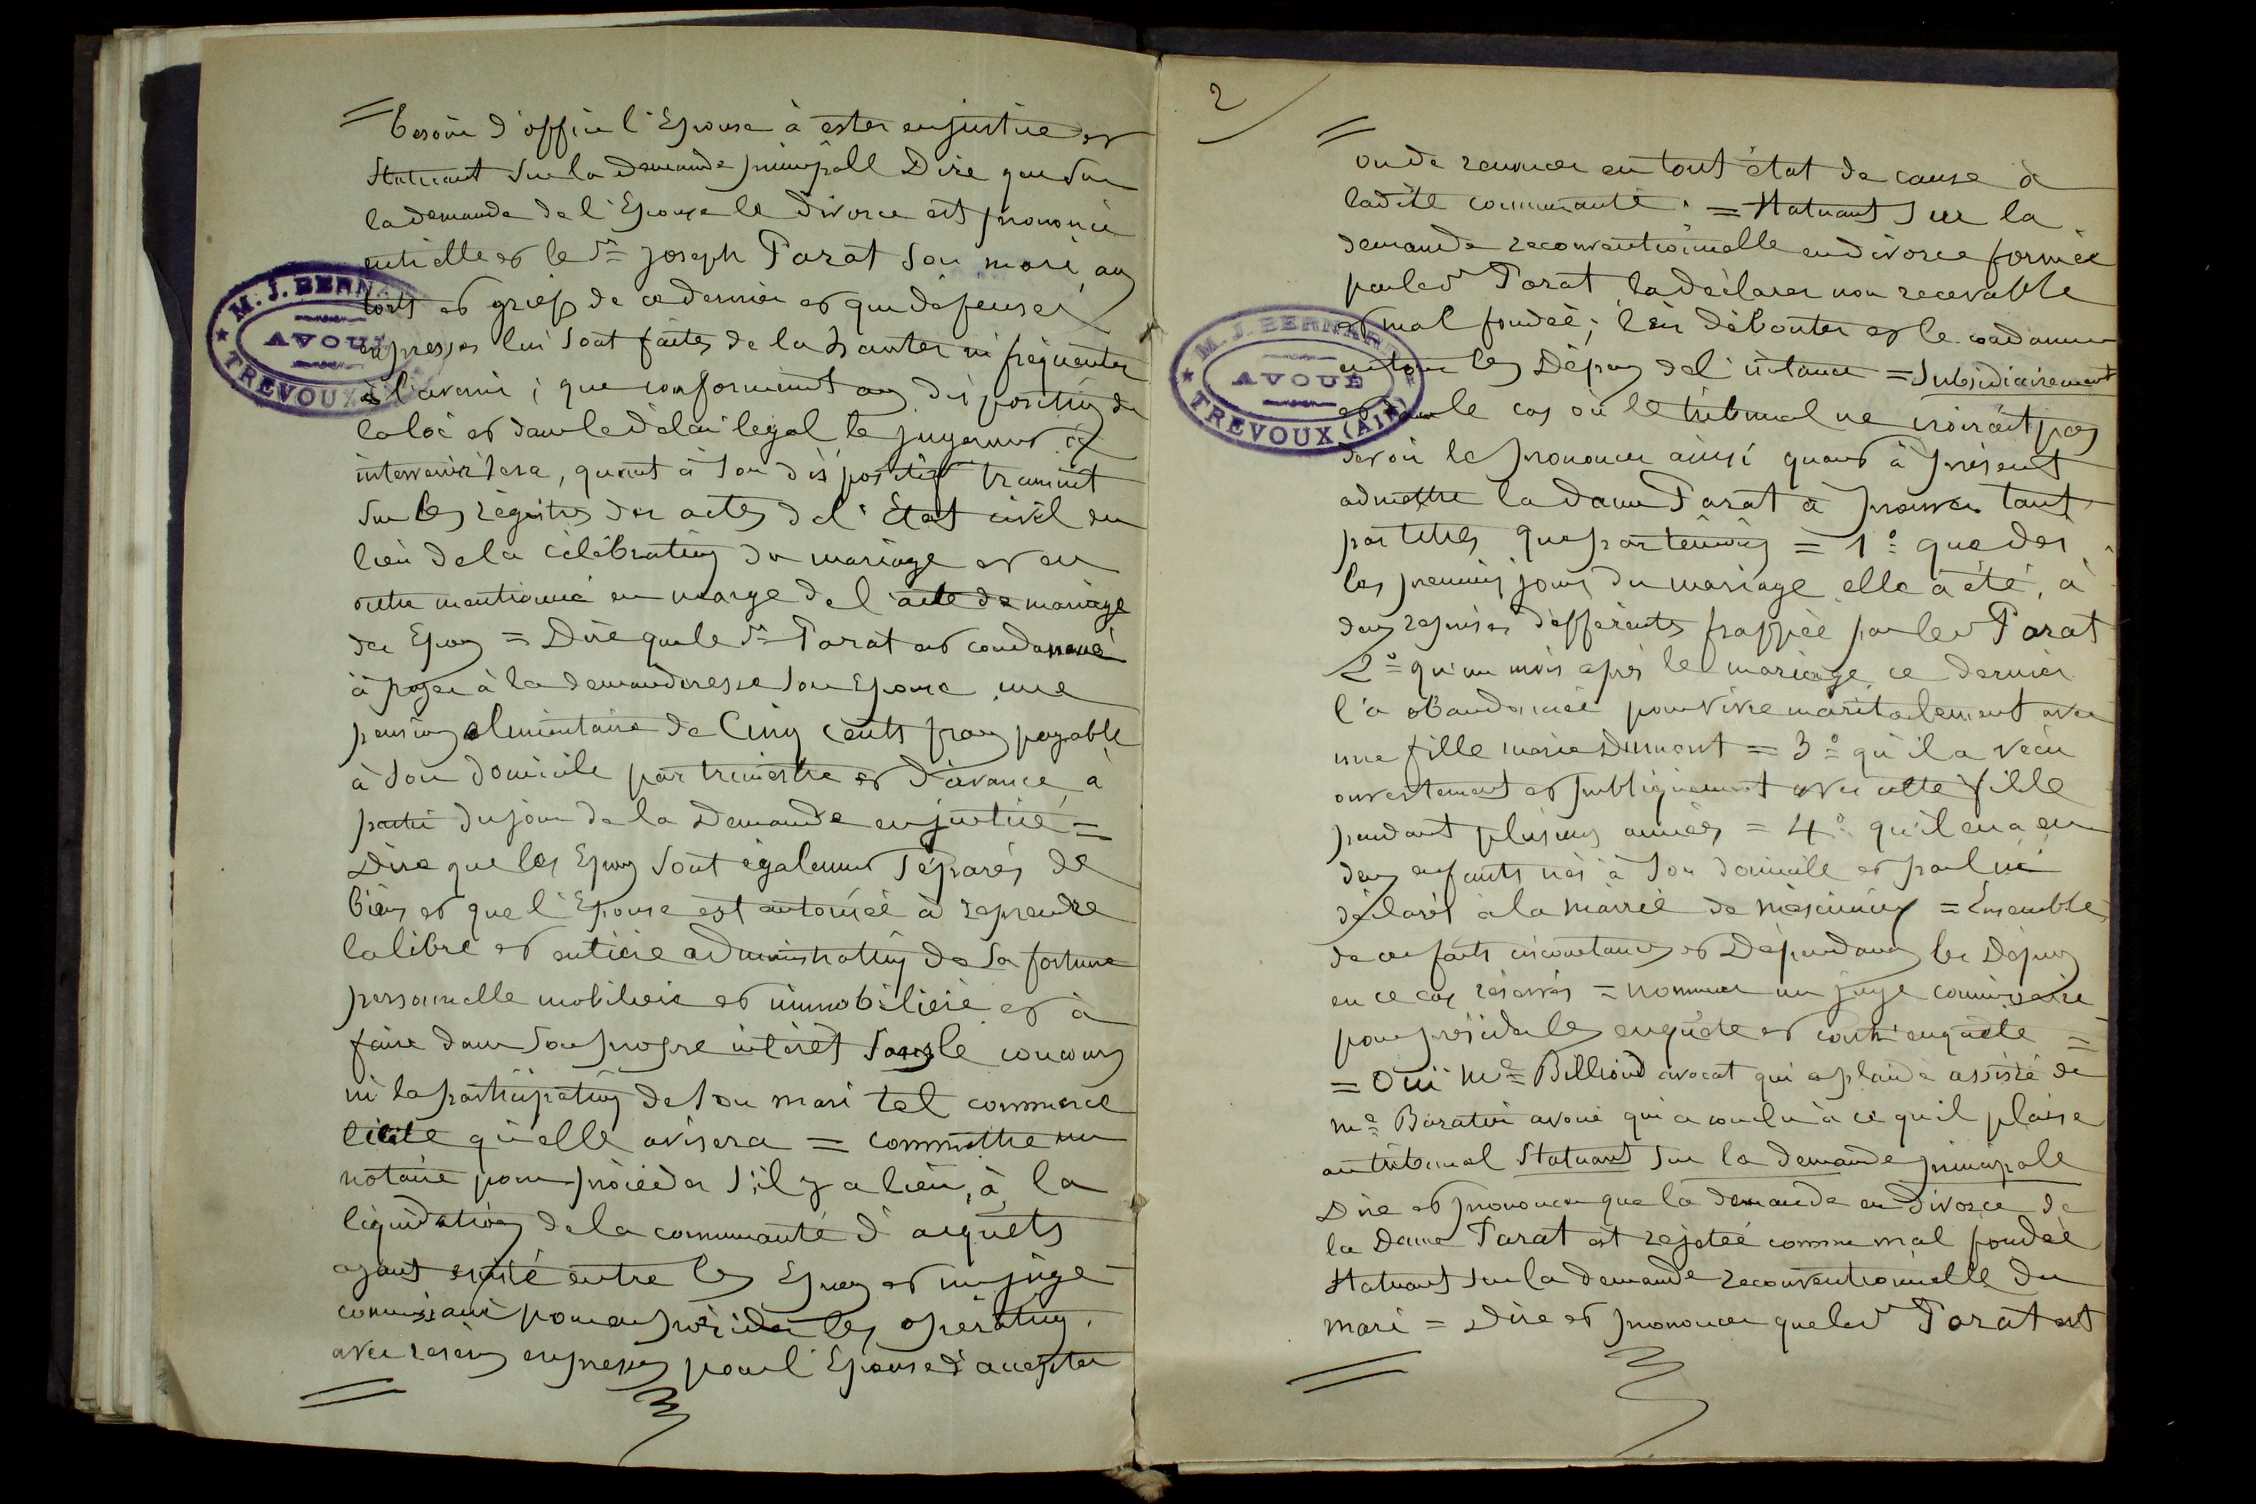 besoin d'office l'Epouse à ester en justice et
Statuant sur la Demande principale Dire que sur
la demande de l'Epouse le divorce est prononcé
entr'elle et le Sr Joseph Parat son mari, aux
torts et griefs de ce dernier et que défenses
expresses lui sont faites de la hanter ni fréquenter
à l'avenir ; que conformément aux dispositions de
la loi et dans le délai légal le jugement à
intervenir sera, quant à son dispositif transcrit
sur les régistres des actes de l'Etat civil du
lieu de la célébration du mariage et en
outre mentionné en marge de l'acte de mariage
des Epoux = Dire que le Sr Parat est condamné
à payer à la demanderesse son Epouse une
pension alimentaire de Cinq cents francs payable
à son domicile par trimestre et d'avance, à
partir du jour de la Demande en justice =
Dire que les Epoux sont également séparés de
biens et que l'Epouse est autorisée à reprendre
la libre et entière administration de sa fortune
personnelle mobilière et immobilière et à
faire dans son propre intérêt sans le concours
ni la participation de son mari tel commerce
licite qu'elle avisera = commettre un
notaire pour procéder s'il y a lieu, à la
liquidation de la communauté d'acquêts
ayant existé entre les Epoux et un juge
commissaire pour en présider les opérations,
avec réserves expresses pour l'Epouse d'accepter
M. J. BERNA
AVOUÉ
TREVOUX
2
ou de renoncer en tout état de cause à
ladite communauté. = Statuant sur la
demande reconventionnelle en divorce formée
par le sr Parat, la déclarer non recevable
et mal fondée ; l'en débouter et le condamner
en tous les Dépens de l'instance = Subsidiairement
et dans le cas où le tribunal ne croirait pas
devoir le prononcer ainsi quant à présent
admettre la dame Parat à prouver tant
par titres que par témoins = 1o que dès
les premiers jours du mariage elle a été, à
deux reprises différentes frappée par le sr Parat
2o qu'un mois après le mariage ce dernier
l'a abandonnée pour vivre maritalement avec
une fille marie Dumont = 3o qu'il a vécu
ouvertement et publiquement avec cette fille
pendant plusieurs années = 4o qu'il en a eu
deux enfants nés à son domicile et par lui
déclarés à la mairie de = Ensemble
de ces faits circonstances et Dépendances les Dépens
en ce cas réservés = nommer un juge commissaire
pour présider les enquête et contr'enquête =
= Oui Me Billioud avocat qui a plaidé assisté de
me Baratin avoué qui a conclu à ce qu'il plaise
au tribunal Statuant sur la demande principale
Dire et prononcer que la demande en Divorce de
la Dame Parat est rejetée comme mal fondée
Statuant sur la demande reconventionnelle du
mari = Dire et prononcer que le sr Parat est
M. J. BERNA
AVOUÉ
TREVOUX (AIN)